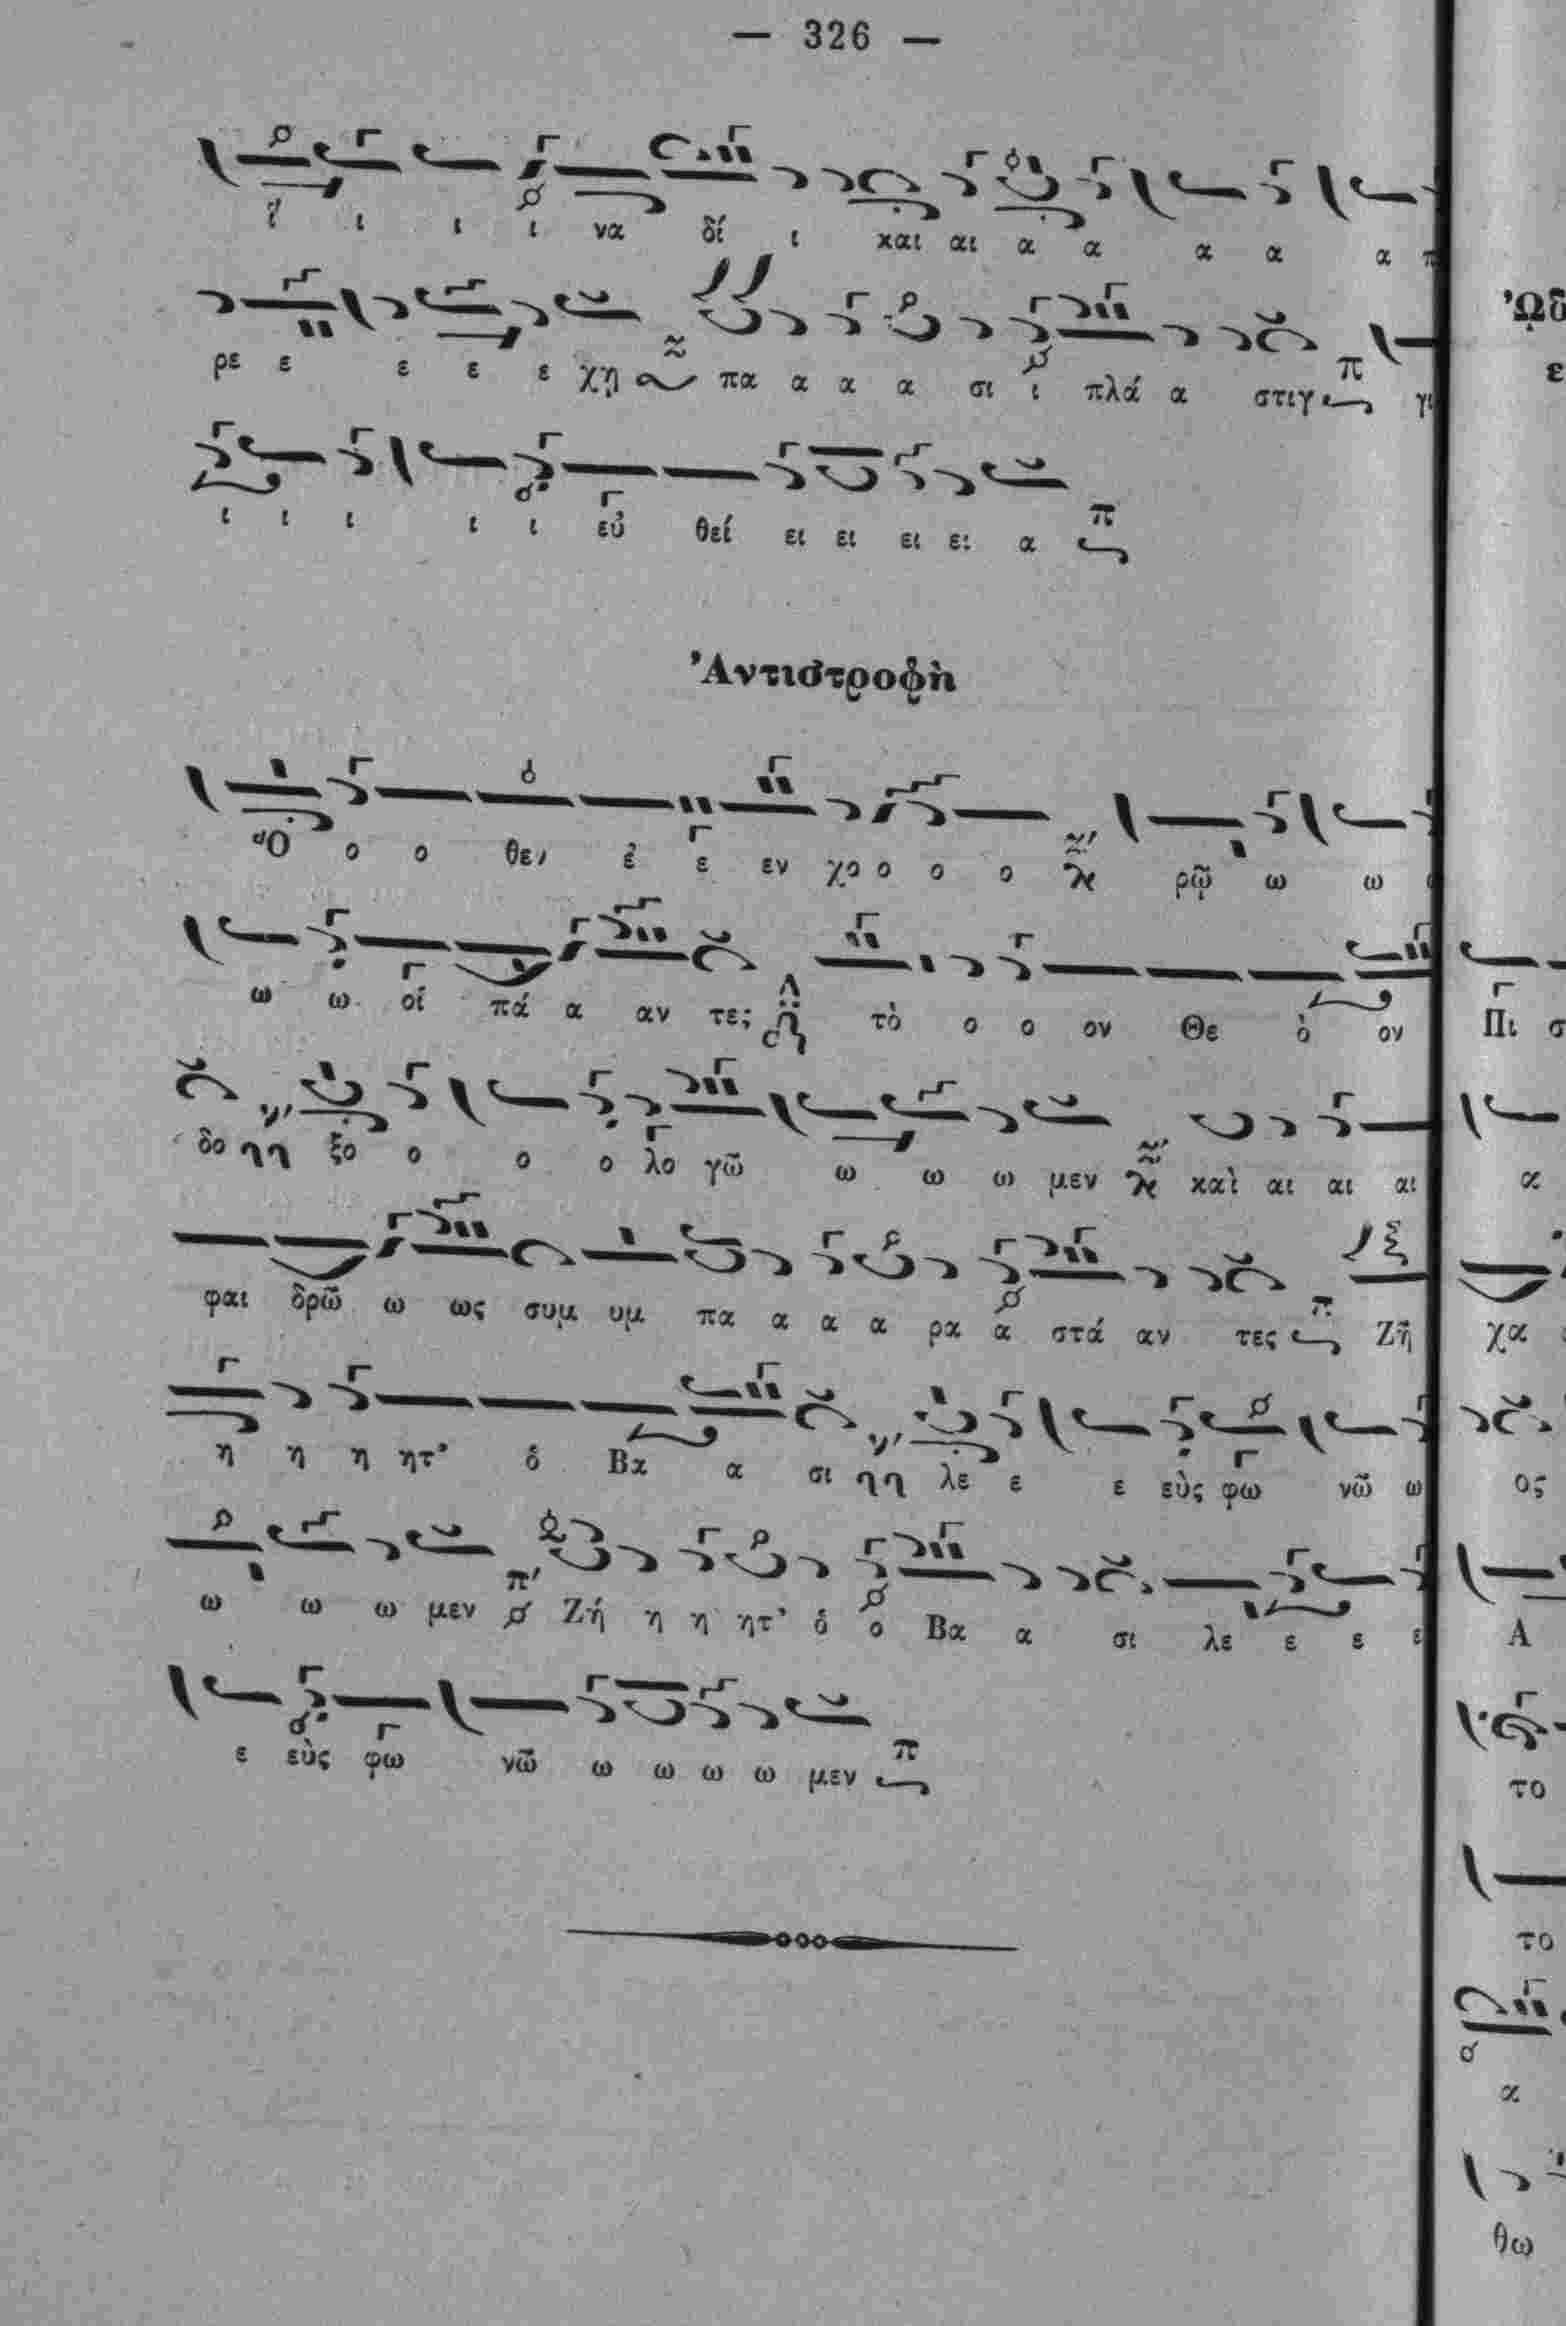 — 326 —
ἵ ι ι ι να δί ι και αι α α α α α π
ρε ε ε ε ε χῃ πα α α α σι ι πλά α στιγ π γι
ι ι ι ι ι εὐ θεί ει ει ει ει α π
Ἀντιστροφὴ
Ὅ ο ο θεν ἐ ε εν χο ο ο ο ρῷ ω ω
ω ω οἱ πά α αν τες τὸ ο ο ον Θε ὸ ον
δο ξο ο ο ο λο γῶ ω ω ω μεν καὶ αι αι αι
φαι δρῶ ω ως συμ υμ πα α α α ρα α στά αν τες π Ζῆ
η η η ητ' ὁ Βα α σι λε ε ε εὺς φω νῶ ω
ω ω ω μεν π' Ζή η η ητ' ὁ ο Βα α σι λε ε ε ε
ε εὺς φω νῶ ω ω ω ω μεν π
Ὠδ
ε
Πι σ
α
χα
ος
Α
το
το
α
θω